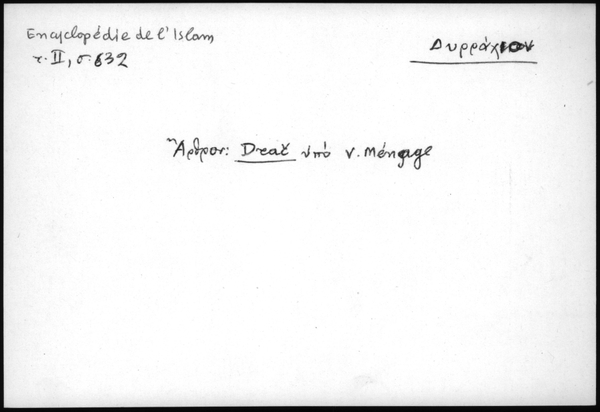 Encyclopédie de l'Islam
τ. II, σ. 632
Δυρράχιον
Ἄρθρον: Drač ὑπό V. Ménage